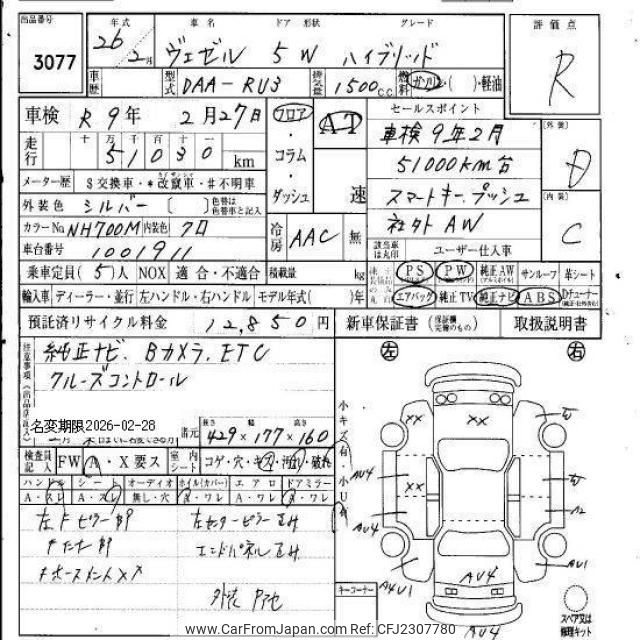 出品番号
3077
年式 車名 ドア 形状 グレード
26年 2月 ヴェゼル 5W ハイブリッド
評価点
R
車歴 型式 DAA-RU3 排気量 1500cc 燃料 ガソリン・( )・軽油
車検 R 9年 2月 27日
フロア・コラム・ダッシュ
AT
速
セールスポイント
車検 9年2月
51000km台
スマートキー、プッシュ
社外 AW
外装
D
内装
C
走行 十 万 千 百 十 一
51030 km
メーター歴 $交換車・*改竄車・#不明車
外装色 シルバー 〔 〕 色替は色替車と記入
カラーNo NH700M 内装色 クロ
冷房 AAC 無
該当車は丸印
ユーザー仕入車
車台番号 1001911
乗車定員 (5)人 NOX 適合・不適合 積載量 kg
PS PW 純正AW サンルーフ 革シート
輸入車 ディーラー・並行 左ハンドル・右ハンドル モデル年式( )年
エアバッグ 純正TV 純正ナビ ABS Dチューナー
預託済リサイクル料金 12,850円 新車保証書 (保証書、完備のもの) 取扱説明書
注意事項(出品店申告)
純正ナビ、Bカメラ、ETC
クルーズコントロール
名変期限2026-02-28
諸元 長さ 幅 高さ
429×177×160
検査員記入 FW A・X要ス 室内シート コゲ・穴・キズ・汚れ・破れ
ハンドル シート オーディオ ホイル(カバー) エアロ ドアミラー
A・スレ A・スレ 無し・穴 A・ワレ A・ワレ A・ワレ
左Fピラー
左センターピラー
エンドパネル
外装
小キズ有・小U有
左
右
XX XX
AU4
XX
AU4
A4U1
AU4
AU4
AU1
キーコーナー
スペア又は修理キット
www.CarFromJapan.com Ref: CFJ2307780